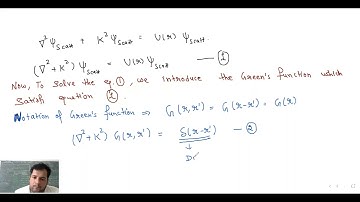 ∇²ψ_Scatt + K²ψ_Scatt = U(r) ψ_Scatt.
(∇²+K²)ψ_Scatt = U(r) ψ_Scatt — ①
Now, To solve the eq ①, we introduce the Green's function which
satisfy equation ②.
Notation of Green's function ⇒ G(r,r') = G(r-r') = G(r)
(∇²+K²) G(r,r') = δ(r-r') — ②
↓
Di